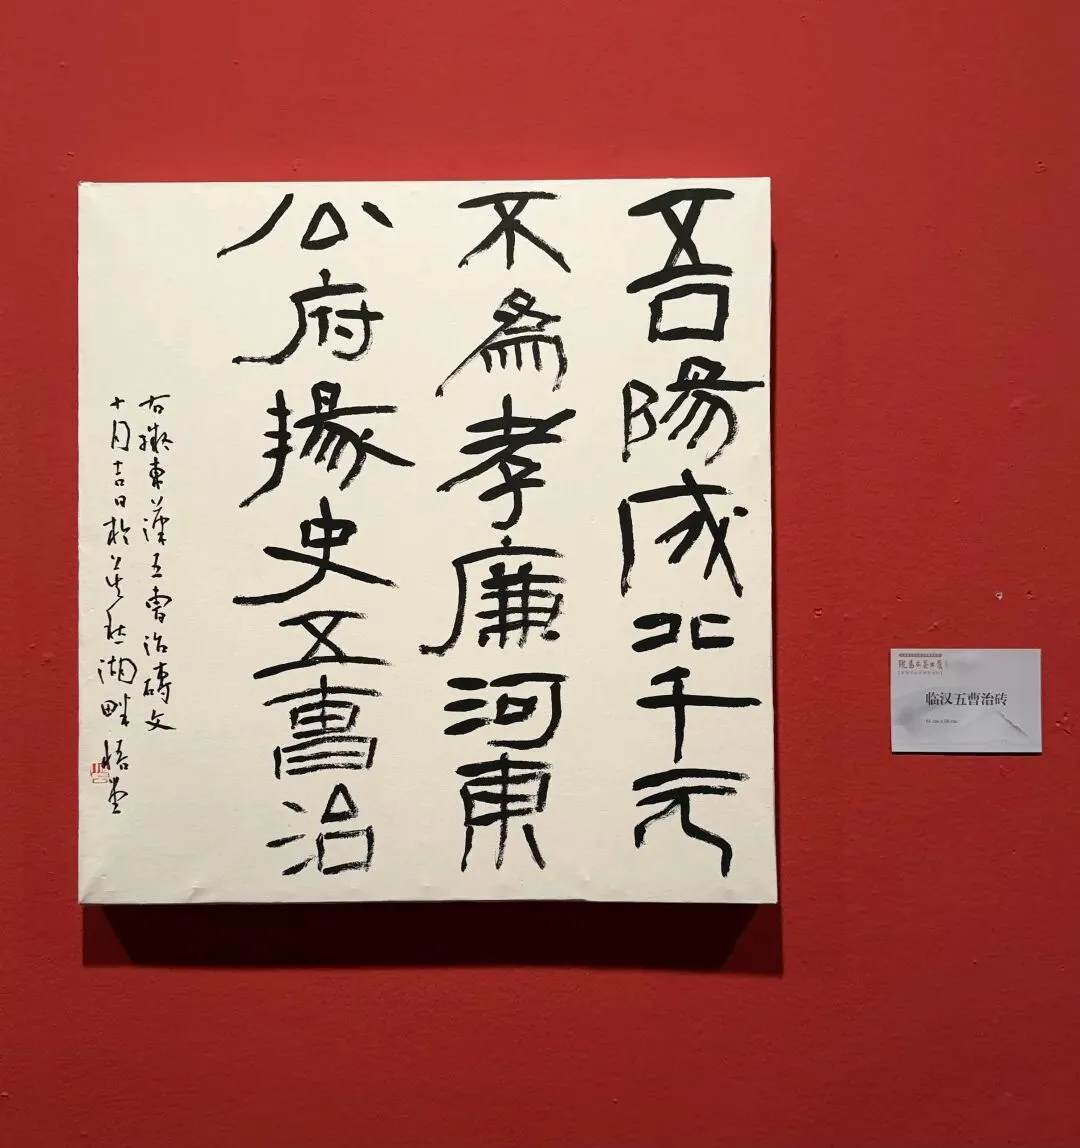 吾陽成北千元
不為孝廉河東
公府掾史五曹治
右擬東漢五曹治磚文
十月吉日於莫愁湖畔悟堂
临汉五曹治砖